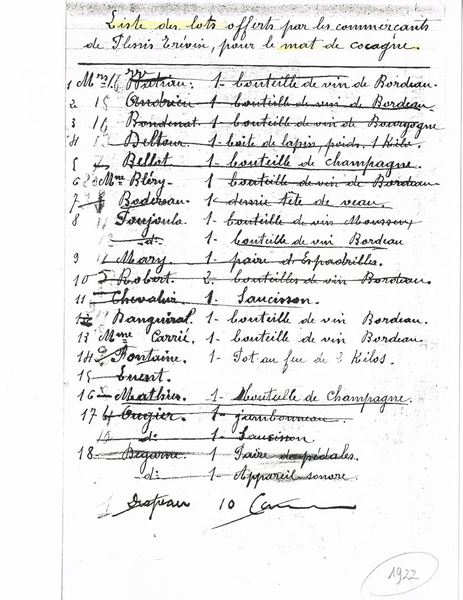 Liste des lots offerts par les commerçants
de Plessis Trévise, pour le mat de cocagne.
1 Mr 1- bouteille de vin de Bordeau.
2 15 Andrieu 1- bouteille de vin de Bordeau
3 16 Bondenat 1- bouteille de vin de Bourgogne
4 Beltour 1- boite de lapin, poids, 1 kilo.
5 Bellot 1- bouteille de champagne.
6 Mme Bléry 1 bouteille de vin de Bordeau
7 1- demie tête de veau.
8 Toujoula 1- bouteille de vin Mousseux
-d- 1- bouteille de vin Bordeau
9 Mary. 1- paire d'Espadrilles.
10 Robert. 2. bouteilles de vin Bordeau.
11 Chevalier 1. Saucisson.
12 Banguiral 1- bouteille de vin Bordeau.
13 Mme Carrié. 1- bouteille de vin Bordeau
14 Fontaine. 1- Pot au feu de 2 Kilos.
15
16 Mathieu 1- bouteille de Champagne.
17 Ougier. 1- jambonneau.
-d- 1- Saucisson
18 Begarne 1. Paire de pédales.
-d- 1- Appareil sonore
Drapeau 10
1922